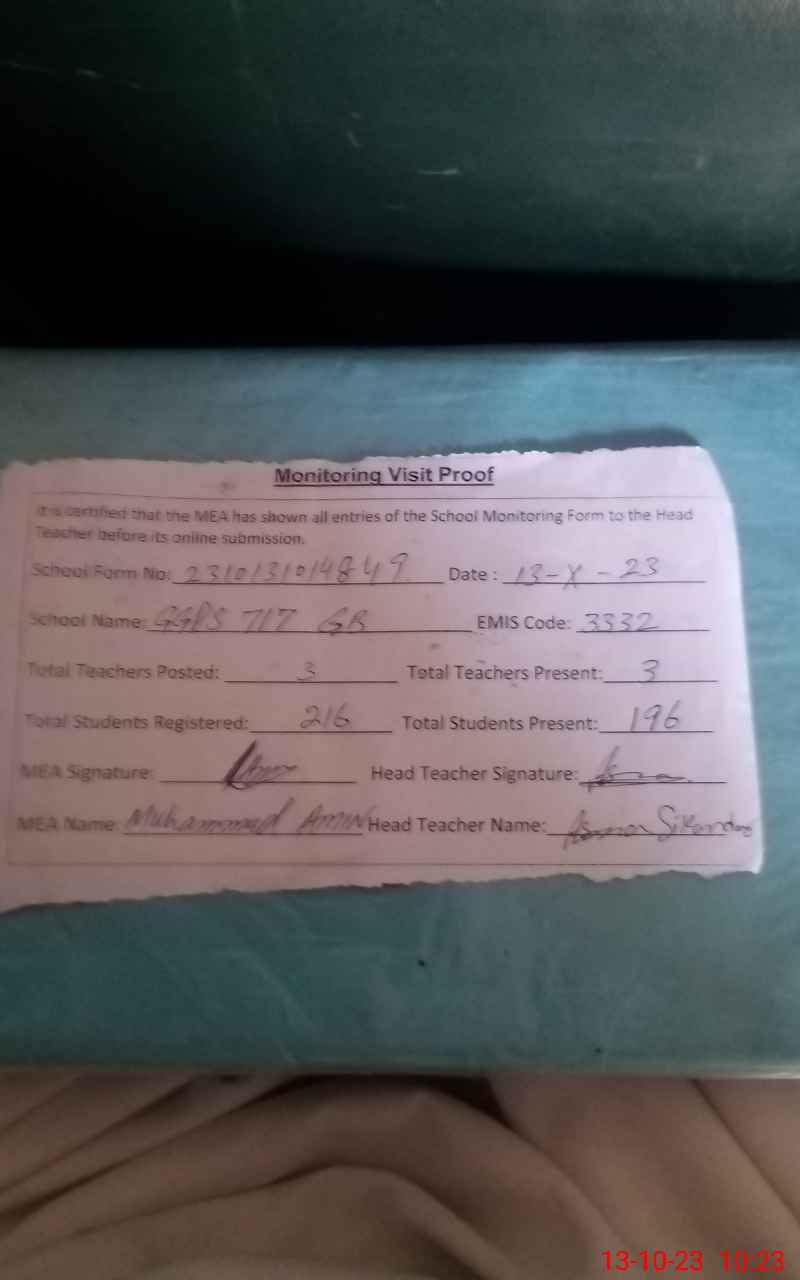 Monitoring Visit Proof
It is certified that the MEA has shown all entries of the School Monitoring Form to the Head
Teacher before its online submission.
School Form No: 2310131014849 Date : 13-X-23
School Name: GGPS 717 GB EMIS Code: 3332
Total Teachers Posted: 3 Total Teachers Present: 3
Total Students Registered: 216 Total Students Present: 196
MEA Signature: Head Teacher Signature:
MEA Name: Muhammad Amin Head Teacher Name: Asma Sikandar
13-10-23 10:23